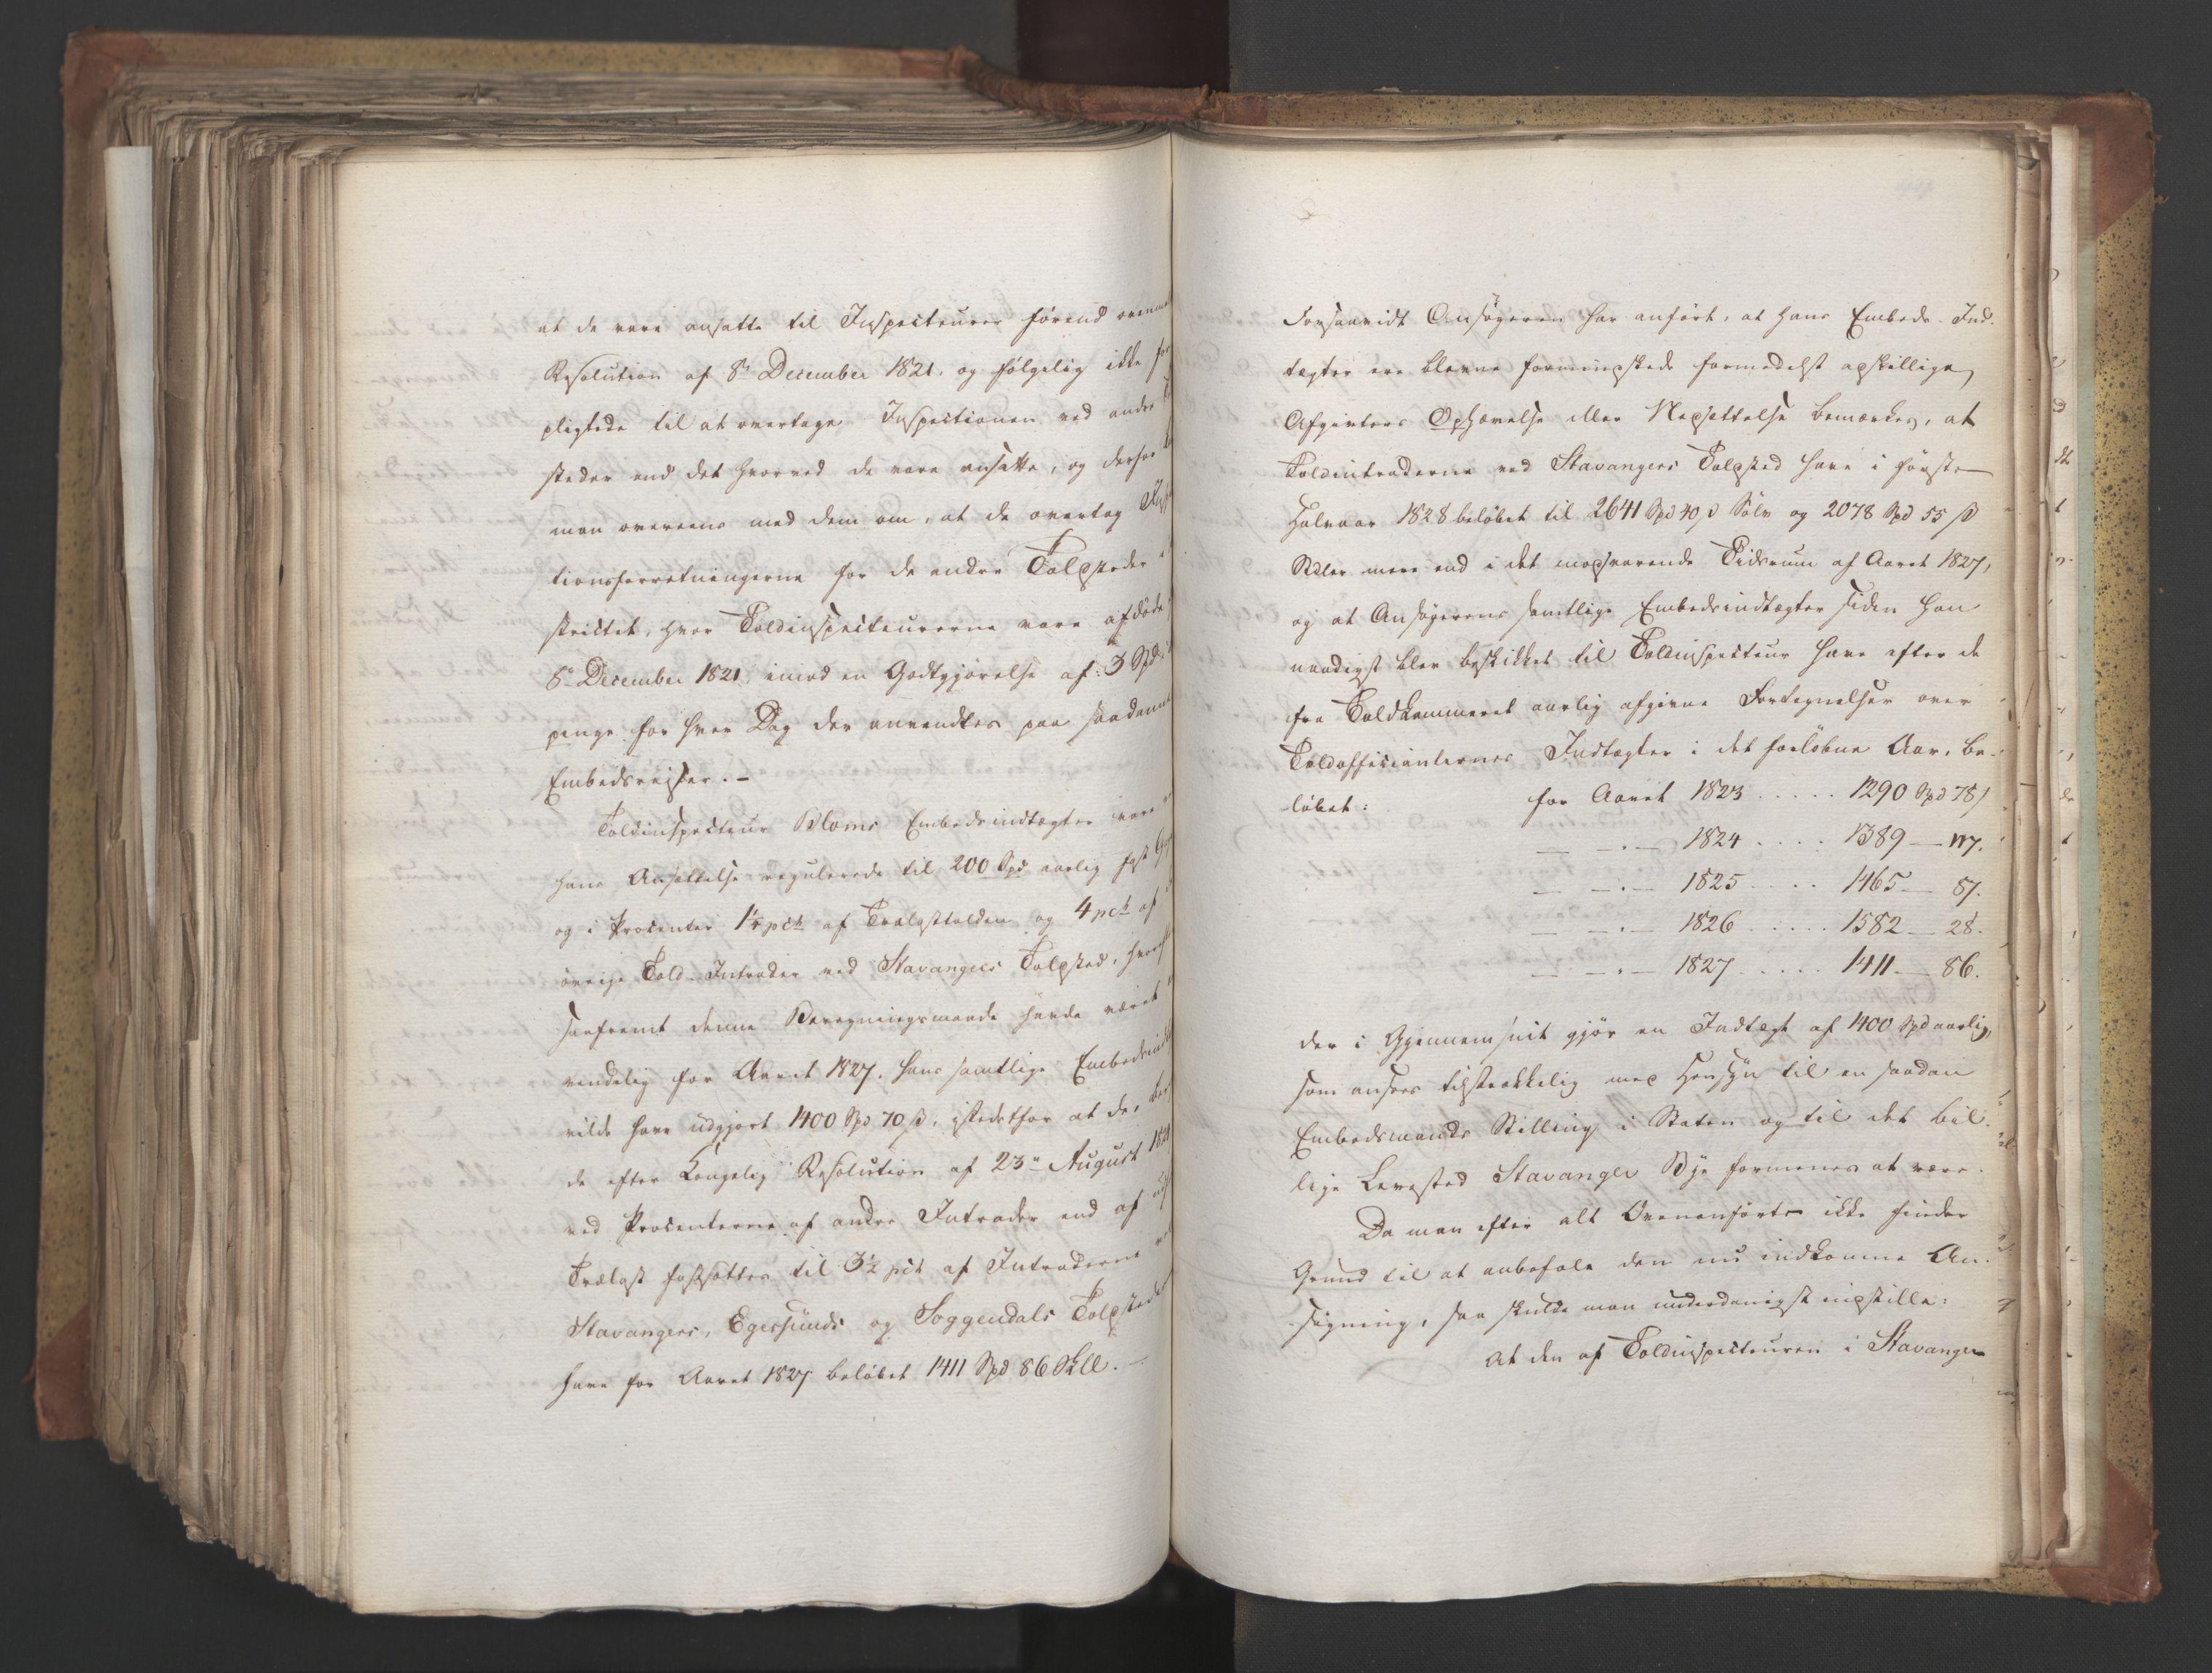 at de vare ansatte til Inspecteurer førend ovenn
Resolution af 8de December 1821. og følgelig ikke for
pligtede til at overtage Inspectionen ved andre
steder end det hvorved de vare ansatte, og derfor
man overeens med dem om, at de overtog Insp
tionsforretningerne for de andre Toldsteder
strictet, hvor Toldinspecteurerne vare afdøde
8de December 1821, imod en Godtgjørelse af 3 Spd
penge for hver Dag der anvendtes paa saadanne
Embedsreiser. -
Toldinspecteur Bloms Embedsindtægter vare
hans Ansættelse regulerede til 200 Spd aarlig fast
og i Procenter 1½ pCt af Trælasttolden og 4 pCt af
øvrige Told-Intrader ved Stavangers Toldsted, hvor
saafremt denne Beregningsmaade havde været
vendelig for Aaret 1827. hans samtlige Embedsind
vilde have udgjort 1400 Spd 70 ß, istedetfor at de,
de efter Kongelig Resolution af 23de August 18
ved Procenterne af andre Intrader end af
Trælast fastsattes til 3½ pCt af Intraderne
Stavangers, Egersunds og Soggendals Toldsteder
have for Aaret 1827 beløbet 1411 Spd 86 Skll. -
Forsaavidt Ansøgeren har anført, at hans Embeds-Ind-
tægter ere blevne formindskede formedelst adskillige
Afgivters Ophævelse eller Nedsættelse bemærkes, at
Toldintraderne ved Stavangers Toldsted have i første
Halvaar 1828 beløbet til 2641 Spd 40 ß Sølv og 2078 Spd 55 ß
Sedler mere end i det modsvarende Tidsrum af Aaret 1827,
og at Ansøgerens samtlige Embedsindtægter siden han
naadigst blev beskikket til Toldinspecteur have efter de
fra Toldkammeret aarlig afgivne Fortegnelser over
Toldofficianternes Indtægter i det forløbne Aar, be-
løbet: for Aaret 1823 ..... 1290 Spd 78 ß
— — 1824 .... 1389 — 117.
— — 1825 .... 1465 — 87.
— — 1826 ..... 1582 — 28.
— — 1827 ..... 1411 — 86.
der i Gjennemsnit gjør en Indtægt af 1400 Spd aarlig,
som ansees tilstrækkelig med Hensyn til en saadan
Embedsmands Stilling i Staten og til det bil-
lige Levested Stavanger Bye formenes at være.
Da man efter alt Ovenanførte ikke finder
Grund til at anbefale den nu indkomne An-
søgning, saa skulde man underdanigst indstille:
At den af Toldinspecteuren i Stavanger